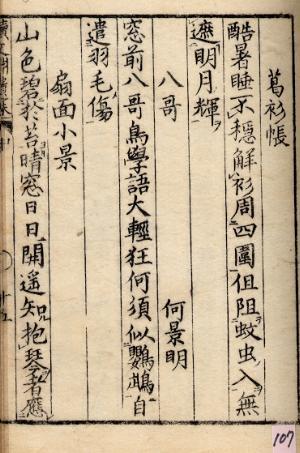 葛衫帳
酷暑睡不穩解衫周四圍但阻蚊虫入無
遮明月輝
八哥 何景明
窓前八哥鳥學語大輕狂何須似鸚鵡自
遣羽毛傷
扇面小景
山色碧於苔晴窓日日開遥知抱琴者應
107